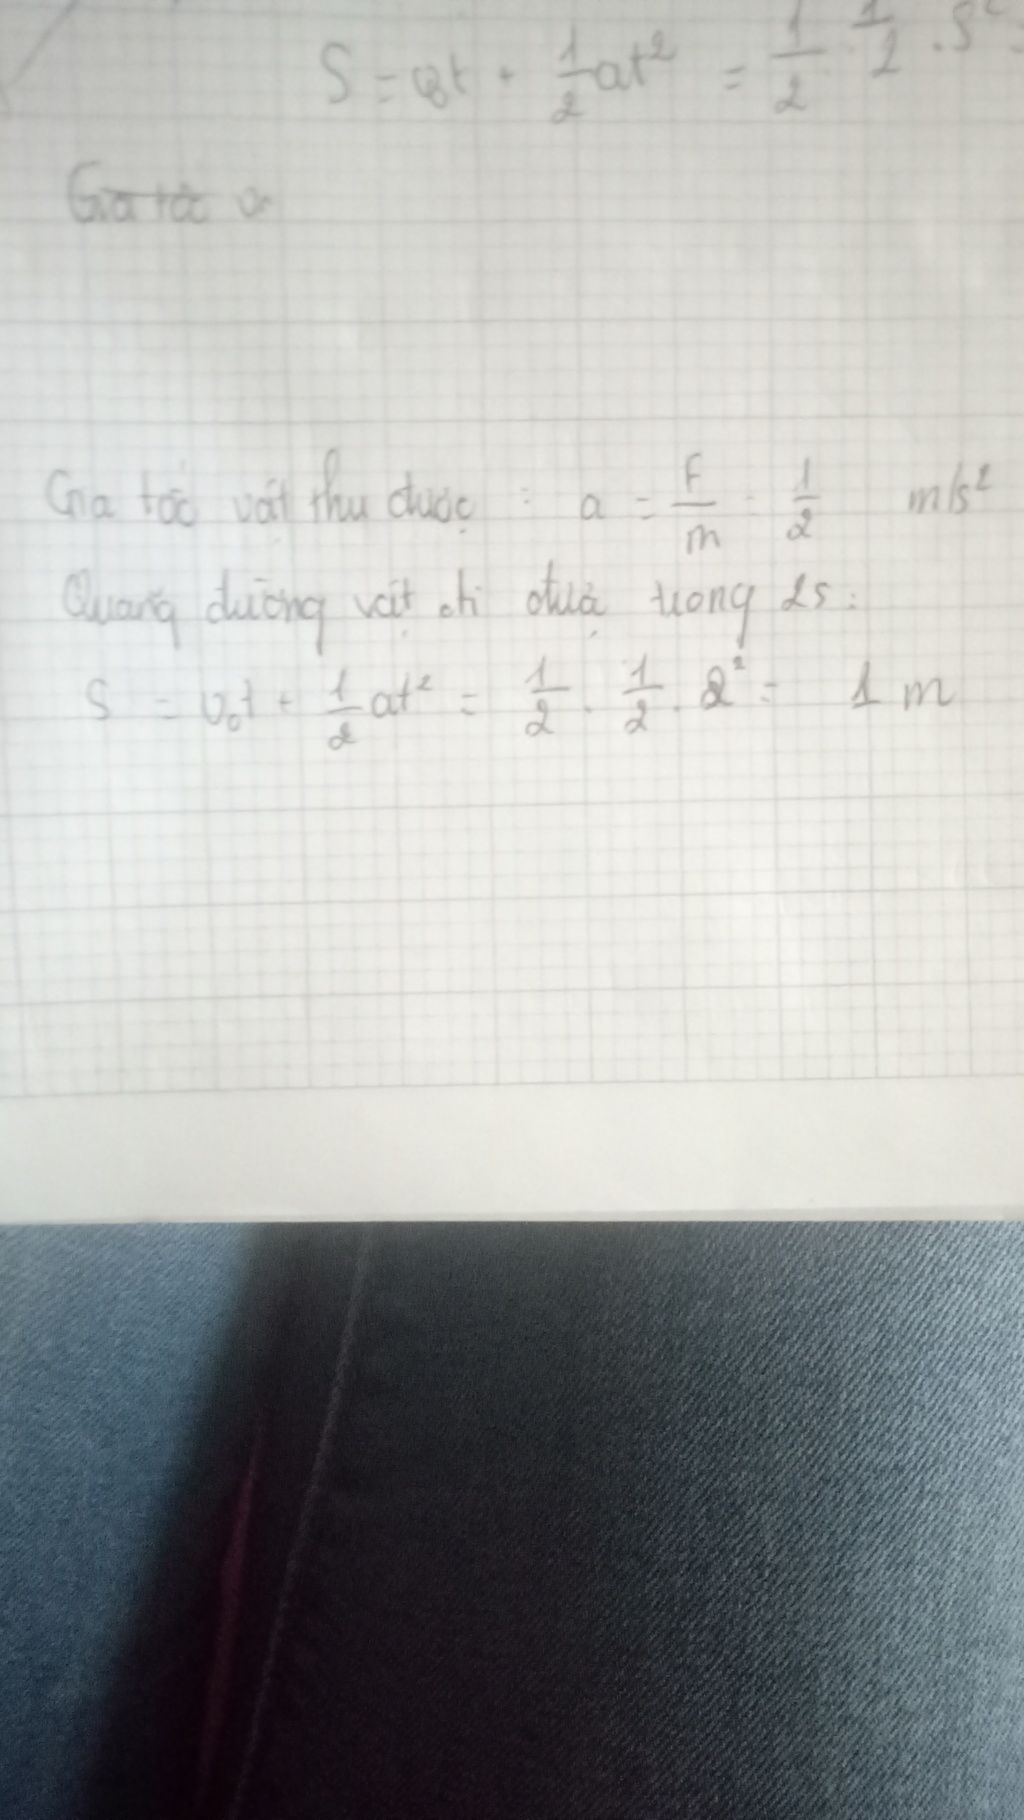 S = v₀t + 1/2 at² = 1/2 . 1/2 .
Gia tốc
Gia tốc vật thu được : a = F/m = 1/2 m/s²
Quãng đường vật đi được trong 2s :
S = v₀t + 1/2 at² = 1/2 . 1/2 . 2² = 1 m